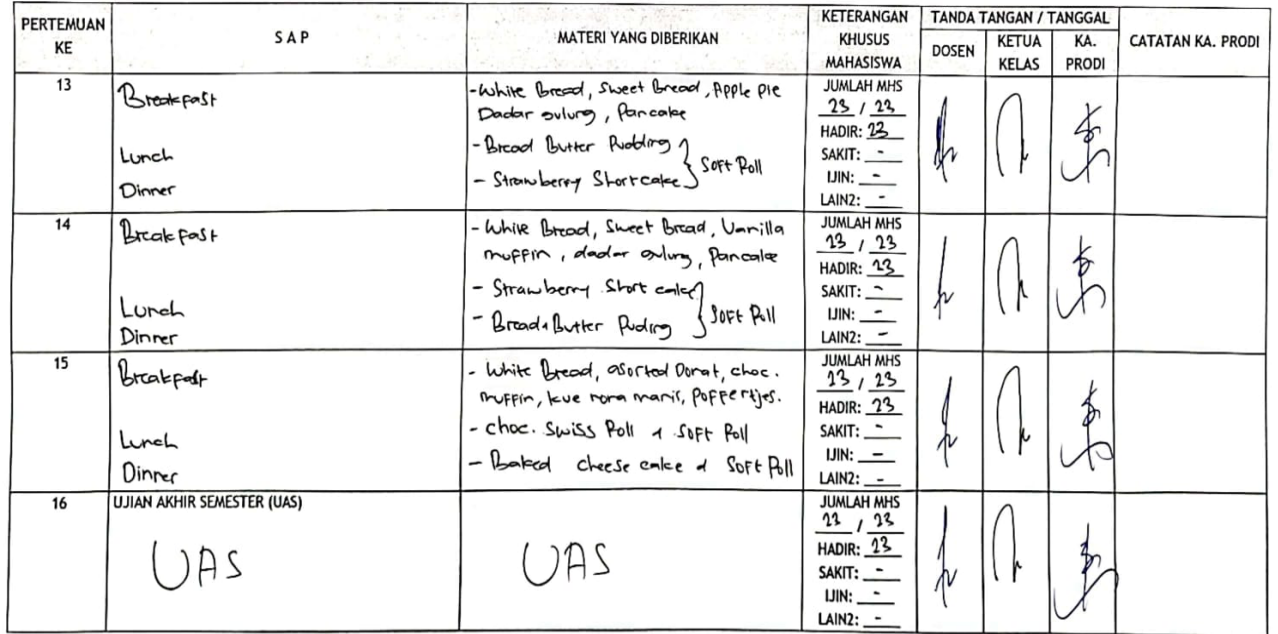 PERTEMUAN KE
S A P
MATERI YANG DIBERIKAN
KETERANGAN KHUSUS MAHASISWA
TANDA TANGAN / TANGGAL
DOSEN
KETUA KELAS
KA. PRODI
CATATAN KA. PRODI
13
Breakfast
Lunch
Dinner
- White Bread, Sweet Bread, Apple pie
Dadar gulung, Pancake
- Bread Butter Pudding
- Strawberry Shortcake
Soft Roll
JUMLAH MHS
23 / 23
HADIR: 23
SAKIT: -
IJIN: -
LAIN2: -
14
Breakfast
Lunch
Dinner
- White Bread, Sweet Bread, Vanilla
muffin, dadar gulung, Pancake
- Strawberry Short cake
- Bread & Butter Puding
Soft Roll
JUMLAH MHS
23 / 23
HADIR: 23
SAKIT: -
IJIN: -
LAIN2: -
15
Breakfast
Lunch
Dinner
- White Bread, asorted Donat, choc.
muffin, kue nona manis, Poffertjes.
- choc. Swiss Roll & Soft Roll
- Baked cheese cake & Soft Roll
JUMLAH MHS
23 / 23
HADIR: 23
SAKIT: -
IJIN: -
LAIN2: -
16
UJIAN AKHIR SEMESTER (UAS)
UAS
UAS
JUMLAH MHS
23 / 23
HADIR: 23
SAKIT: -
IJIN: -
LAIN2: -